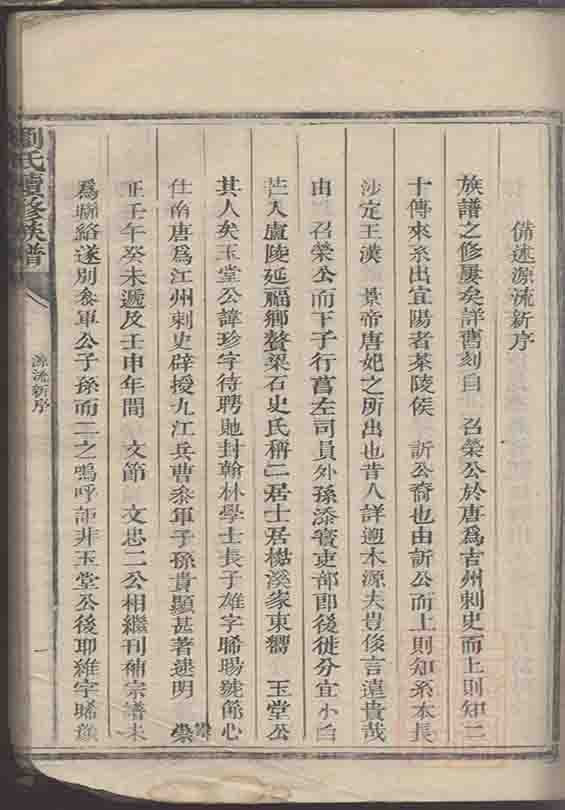 備述源流新序
族譜之修屢矣詳舊刻自 召榮公於唐爲吉州刺史而上則知二
十傳來系出宜陽者茶陵侯 訢公裔也由訢公而上則知系本長
沙定王漢 景帝唐妃之所出也昔人詳遡木源夫豈侈言遠貴哉
由 召榮公而下子行嘗左司員外孫添賓吏部郎後徙分宜小白
芒入廬陵延福鄉贅梁石史氏稱二居士居 溪家東 玉堂公
其人矣玉堂公諱珍字待聘貤封翰林學士長子雄字晞暘號條心
仕南唐爲江州刺史辟授九江兵曹叅軍子孫貴顯甚著逮明 崇
正壬午癸未遞及壬申年間 文節 文忠二公相繼刊補宗譜未
爲聯絡遂別叅軍公子孫而二之嗚呼詎非玉堂公後耶維字晞顏
劉氏續修族譜
源流新序
一